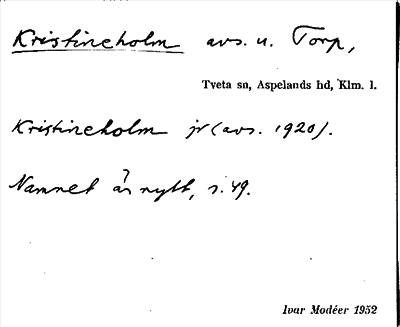 Kristineholm avs. u. Torp,
Tveta sn, Aspelands hd, Klm. l.
Kristineholm jr (avs. 1920).
Namnet är nytt, s. 49.
Ivar Modéer 1952